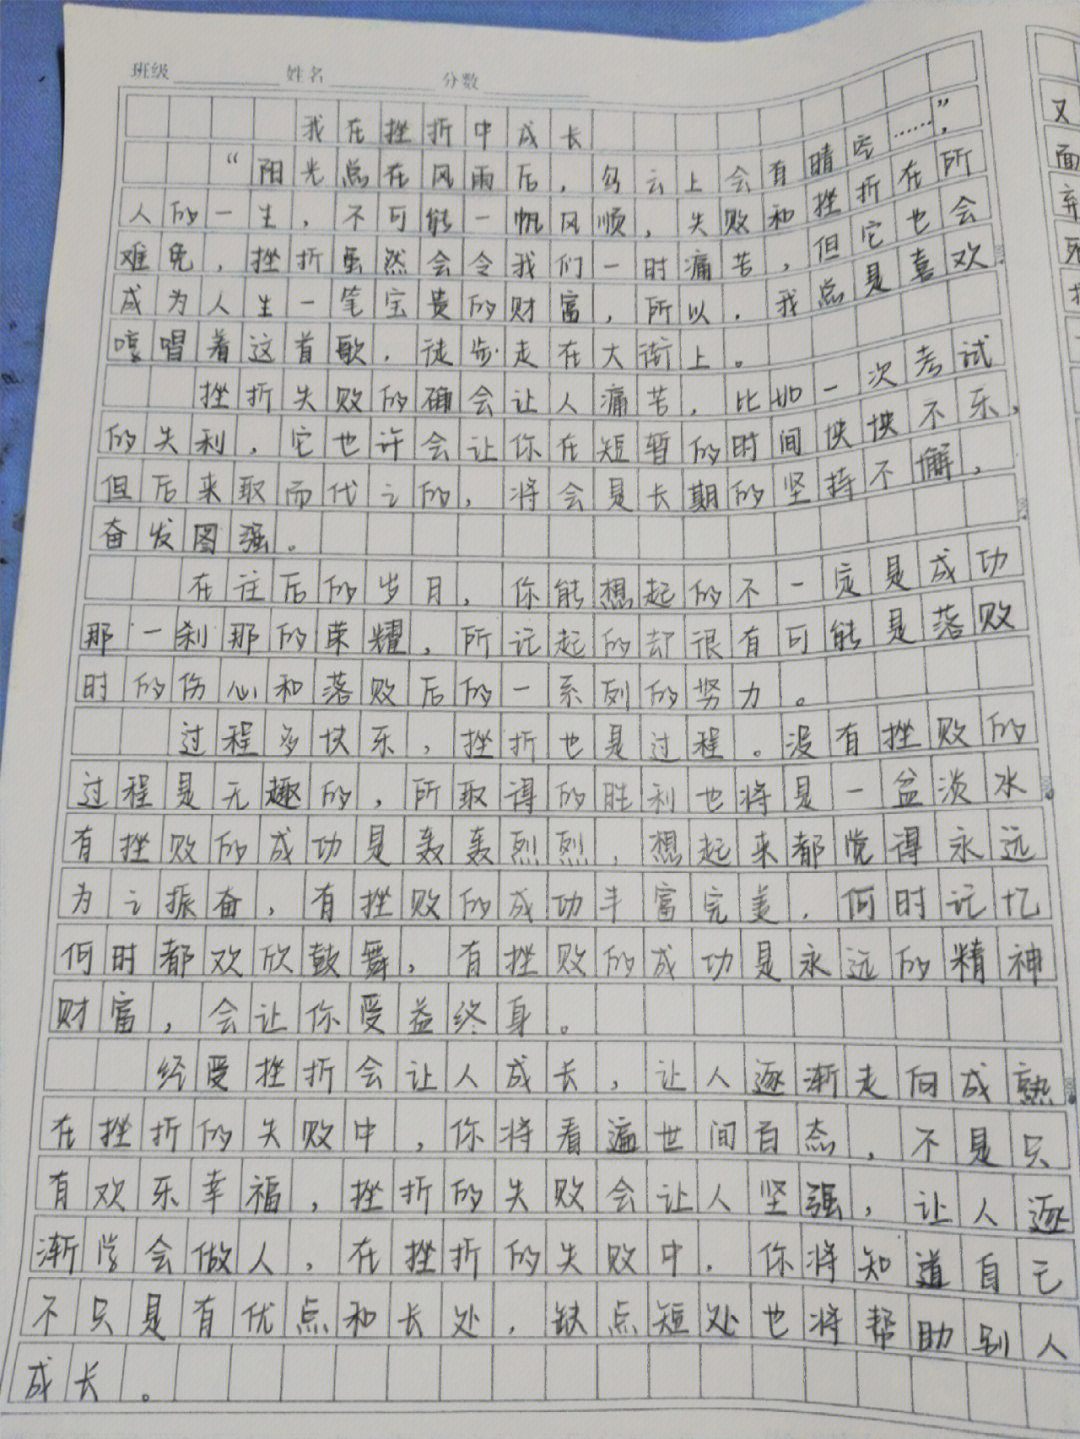 班级 姓名 分数
我在挫折中成长
“阳光总在风雨后，乌云上会有晴空……”，
人的一生，不可能一帆风顺，失败和挫折在所
难免，挫折虽然会令我们一时痛苦，但它也会
成为人生一笔宝贵的财富，所以，我总是喜欢
哼唱着这首歌，徒步走在大街上。
挫折失败的确会让人痛苦，比如一次考试
的失利，它也许会让你在短暂的时间怏怏不乐，
但后来取而代之的，将会是长期的坚持不懈，
奋发图强。
在往后的岁月，你能想起的不一定是成功
那一刹那的荣耀，所记起的却很有可能是落败
时的伤心和落败后的一系列的努力。
过程多快乐，挫折也是过程。没有挫败的
过程是无趣的，所取得的胜利也将是一盆淡水
有挫败的成功是轰轰烈烈，想起来都觉得永远
为之振奋，有挫败的成功丰富完美，何时记忆
何时都欢欣鼓舞，有挫败的成功是永远的精神
财富，会让你受益终身。
经受挫折会让人成长，让人逐渐走向成熟
在挫折的失败中，你将看遍世间百态，不是只
有欢乐幸福，挫折的失败会让人坚强，让人逐
渐学会做人，在挫折的失败中，你将知道自己
不只是有优点和长处，缺点短处也将帮助别人
成长。
又
面